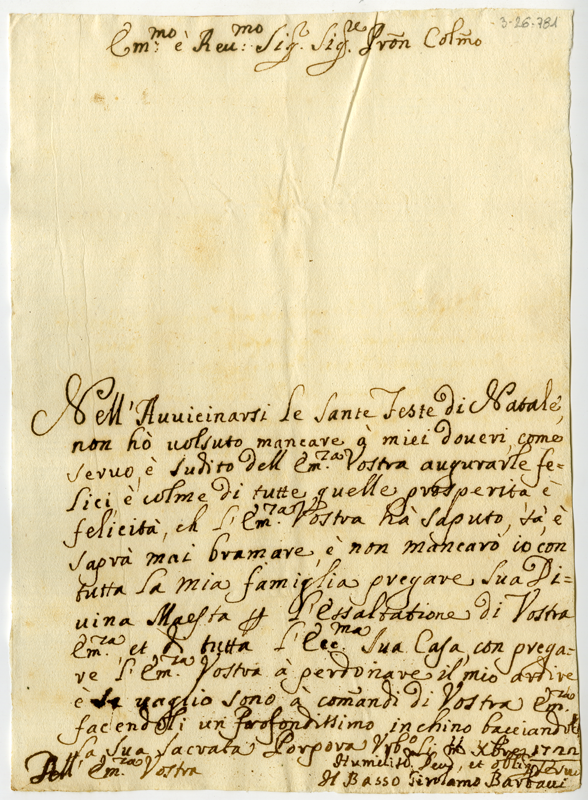 3-26-781
Em.mo è Reu.mo Sig.r Sig.re Pron Colmo
Nell'Auuicinarsi le Sante Feste di Natale,
non hò uolsuto mancare à miei doueri, come
seruo, è sudito dell'Em.za Vostra augurarle fe-
lici, è colme di tutte quelle prosperità è
felicità, ch l'Em.za Vostra hà saputo, sà è
saprà mai bramare, è non mancarò io, con
tutta la mia famiglia pregare Sua Di-
uina Maestà p l'Essaltatione di Vostra
Em.za et di tutta l'Ecc.ma Sua Casa, con prega-
re l'Em.za Vostra à perdonare il mio ardire
è se uaglio sono à comandi di Vostra Em.za
facendoli un profondissimo inchino bacciandoli
la sua sacrata Porpora Urb.o li Xbre 1722
Dell'Em.za Vostra
Humilis.o Deu.o et oblig.
Il Basso Girolamo Barbacci